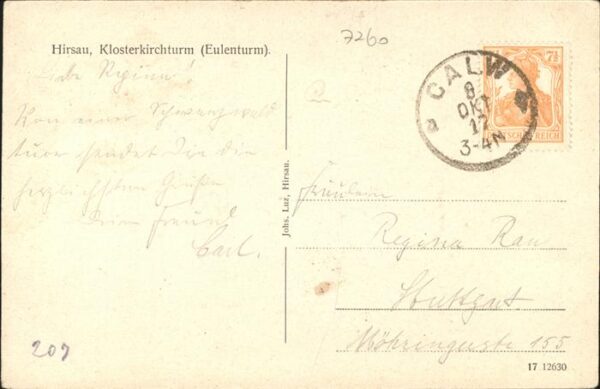 7260
Hirsau, Klosterkirchturm (Eulenturm).
Liebe Regina!
Von einer Schwarzwald
ture sendet Dir die
herzlichsten Grüße
Dein Freund
Carl.
Johs. Luz, Hirsau.
CALW
8
OKT
17
3-4N
7½
Fräulein
Regina Rau
Stuttgart
Möhringerstr 155
207
17 12630